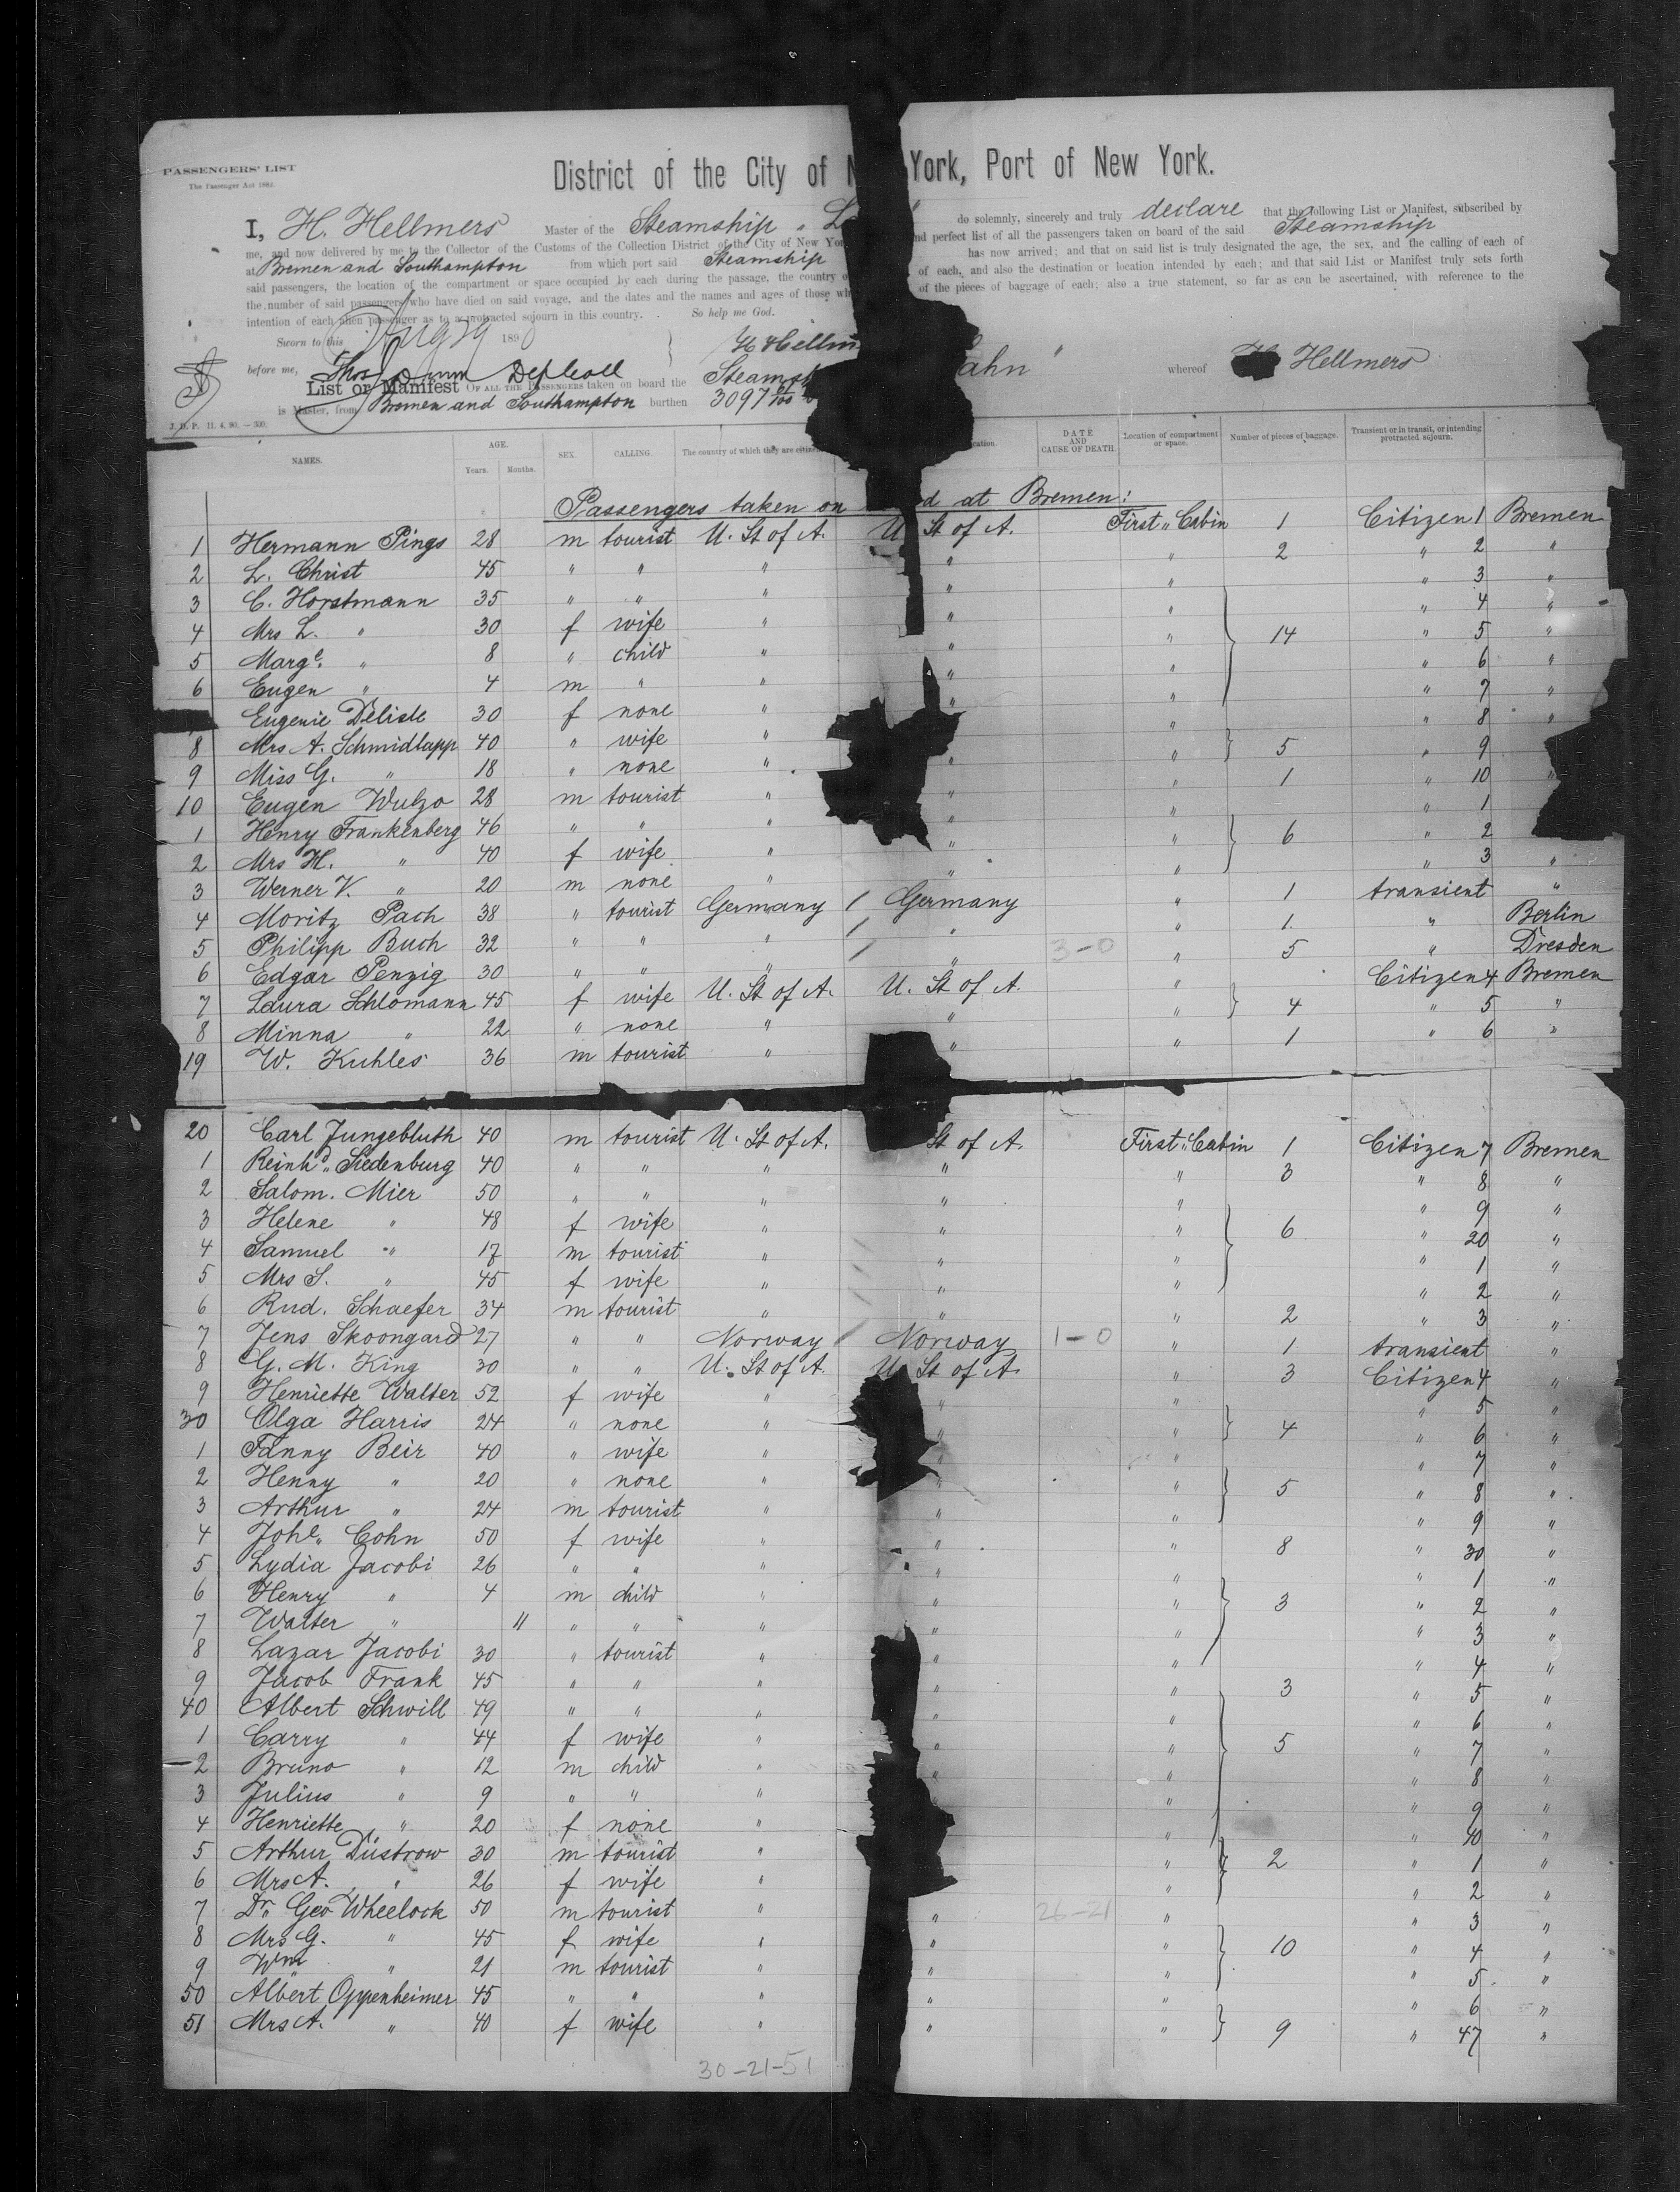 PASSENGERS' LIST
The Passenger Act 1882.
District of the City of N York, Port of New York.
I, H. Hellmers Master of the Steamship " L " do solemnly, sincerely and truly declare that the following List or Manifest, subscribed by
me, and now delivered by me to the Collector of the Customs of the Collection District of the City of New Yor nd perfect list of all the passengers taken on board of the said Steamship
at Bremen and Southampton from which port said Steamship has now arrived; and that on said list is truly designated the age, the sex, and the calling of each of
said passengers, the location of the compartment or space occupied by each during the passage, the country o of each, and also the destination or location intended by each; and that said List or Manifest truly sets forth
the number of said passengers who have died on said voyage, and the dates and the names and ages of those wh of the pieces of baggage of each; also a true statement, so far as can be ascertained, with reference to the
intention of each alien passenger as to a protracted sojourn in this country. So help me God.
Sworn to this Aug 29 189 H Hellm
before me, Thos Dunn Dep Coll
List or Manifest OF ALL THE PASSENGERS taken on board the Steamsh ahn " whereof H. Hellmers
is Master, from Bremen and Southampton burthen 3097
J. D. P. 11. 4. 90. — 300.
NAMES. AGE. Years. Months. SEX. CALLING. The country of which they are citizen cation. DATE AND CAUSE OF DEATH. Location of compartment or space. Number of pieces of baggage. Transient or in transit, or intending protracted sojourn.
Passengers taken on d at Bremen:
1 Hermann Pings 28 m tourist U. St of A. U St of A. First " Cabin 1 Citizen 1 Bremen
2 L. Christ 45 " " " " " 2 " 2 "
3 C. Horstmann 35 " " " " " " 3 "
4 Mrs L. " 30 f wife " " " 14 " 4 "
5 Marge. " 8 " child " " " " 5 "
6 Eugen " 4 m " " " " " 6 "
Eugenie Delisle 30 f none " " " " 7 "
8 Mrs A. Schmidlapp 40 " wife " " 5 " 8 "
9 Miss G. " 18 " none " " " " 9
10 Eugen Wulzo 28 m tourist " " " 1 " 10 "
1 Henry Frankenberg 46 " " " " " 6 " 1
2 Mrs H. " 40 f wife " " " " 2
3 Werner V. " 20 m none " " " " 3 "
4 Moritz Pach 38 " tourist Germany / Germany " 1 transient "
5 Philipp Buch 32 " " " / " " 1. " Berlin
6 Edgar Penzig 30 " " " / " 3-0 " 5 " Dresden
7 Laura Schlomann 45 f wife U. St of A. U. St of A. " 4 Citizen 4 Bremen
8 Minna " 22 " none " " " " 5 "
19 W. Kuhles 36 m tourist " " " 1 " 6 "
20 Carl Jungebluth 40 m tourist U. St of A. St of A. First " Cabin 1 Citizen 7 Bremen
1 Reinhd. Siedenburg 40 " " " " " 3 " 8 "
2 Salom. Mier 50 " " " " " 6 " 9 "
3 Helene " 48 f wife " " " " 20 "
4 Samuel " 17 m tourist " " " " 1 "
5 Mrs S. " 45 f wife " " " " 2 "
6 Rud. Schaefer 34 m tourist " " " 2 " 3 "
7 Jens Skoongard 27 " " Norway / Norway 1-0 " 1 transient "
8 G. M. King 30 " " U. St of A. U St of A. " 3 Citizen 4 "
9 Henriette Walter 52 f wife " " " 4 " 5 "
30 Olga Harris 24 " none " " " " 6 "
1 Fanny Beir 40 " wife " " " 5 " 7 "
2 Henny " 20 " none " " " " 8 "
3 Arthur " 24 m tourist " " " " 9 "
4 Johe. Cohn 50 f wife " " " 8 " 30 "
5 Lydia Jacobi 26 " " " " " 3 " 1 "
6 Henry " 4 m child " " " " 2 "
7 Walter " 11 " " " " " " 3 "
8 Lazar Jacobi 30 " tourist " " " " 4 "
9 Jacob Frank 45 " " " " " 3 " 5 "
40 Albert Schwill 49 " " " " " 5 " 6 "
1 Carry " 44 f wife " " " " 7 "
2 Bruno " 12 m child " " " " 8 "
3 Julius " 9 " " " " " 9 "
4 Henriette " 20 f none " " " 40 "
5 Arthur Düstrow 30 m tourist " " 2 " 1 "
6 Mrs A. " 26 f wife " " " 2 "
7 Dr. Geo Wheelock 50 m tourist " " 26-21 " 10 " 3 "
8 Mrs G. " 45 f wife " " " " 4 "
9 Wm " 21 m tourist " " " " 5 "
50 Albert Oppenheimer 45 " " " " " 9 " 6 "
51 Mrs A. " 40 f wife " " " " 47 "
30-21-51